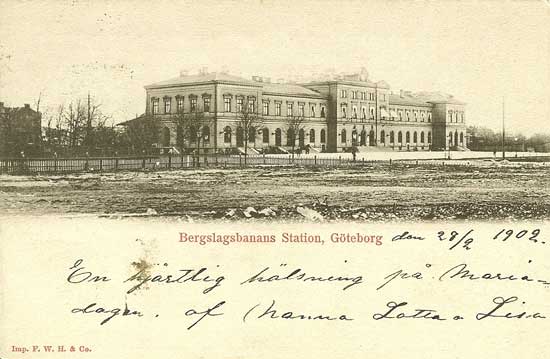 Bergslagsbanans Station, Göteborg den 28/2 1902.
En hjärtlig hälsning på Maria-
dagen. af Hanna Lotta o Lisa
Imp. F. W. H. & Co.